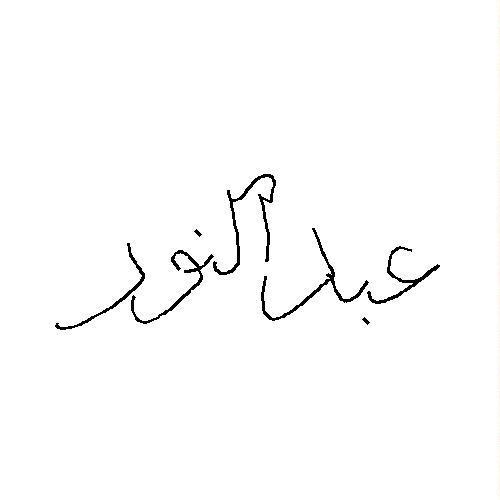 عبد النور